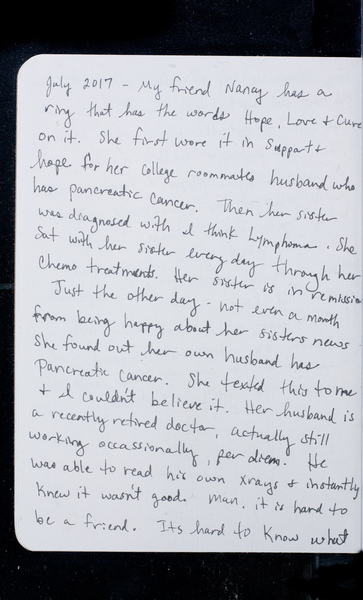 July 2017 - My friend Nancy has a
ring that has the words Hope, Love & Cure
on it. She first wore it in support &
hope for her college roommates husband who
has pancreatic cancer. Then her sister
was diagnosed with I think Lymphoma. She
sat with her sister every day through her
chemo treatments. Her sister is in remission
Just the other day - not even a month
from being happy about her sisters news
she found out her own husband has
Pancreatic Cancer. She texted this to me
& I couldn't believe it. Her husband is
a recently retired doctor, actually still
working occassionally, per diem. He
was able to read his own xrays & instantly
knew it wasn't good. Man, it is hard to
be a friend. Its hard to know what